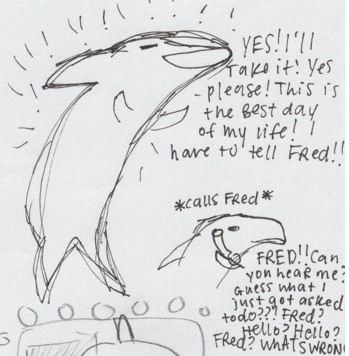 YES! I'll
Take it! Yes
please! This is
the Best day
of my life! I
have to tell Fred!!
*calls Fred*
FRED!! Can
you hear me?
Guess what I
just got asked
to do??! Fred?
Hello? Hello?
Fred? WHATS WRONG